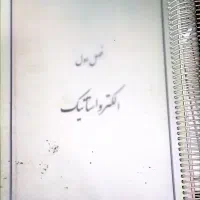 فصل اول
الکترواستاتیک